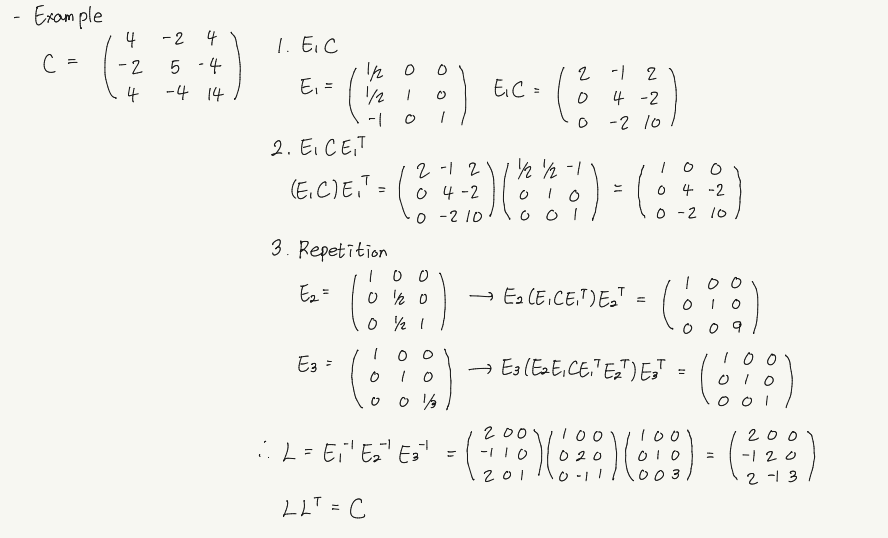 - Example
C = ( 4 -2 4
-2 5 -4
4 -4 14 )
1. E₁C
E₁ = ( 1/2 0 0
1/2 1 0
-1 0 1 )
E₁C = ( 2 -1 2
0 4 -2
0 -2 10 )
2. E₁CE₁ᵀ
(E₁C)E₁ᵀ = ( 2 -1 2
0 4 -2
0 -2 10 )
( 1/2 1/2 -1
0 1 0
0 0 1 )
= ( 1 0 0
0 4 -2
0 -2 10 )
3. Repetition
E₂ = ( 1 0 0
0 1/2 0
0 1/2 1 )
→ E₂(E₁CE₁ᵀ)E₂ᵀ = ( 1 0 0
0 1 0
0 0 9 )
E₃ = ( 1 0 0
0 1 0
0 0 1/3 )
→ E₃(E₂E₁CE₁ᵀE₂ᵀ)E₃ᵀ = ( 1 0 0
0 1 0
0 0 1 )
∴ L = E₁⁻¹ E₂⁻¹ E₃⁻¹ = ( 2 0 0
-1 1 0
2 0 1 )
( 1 0 0
0 2 0
0 -1 1 )
( 1 0 0
0 1 0
0 0 3 )
= ( 2 0 0
-1 2 0
2 -1 3 )
LLᵀ = C